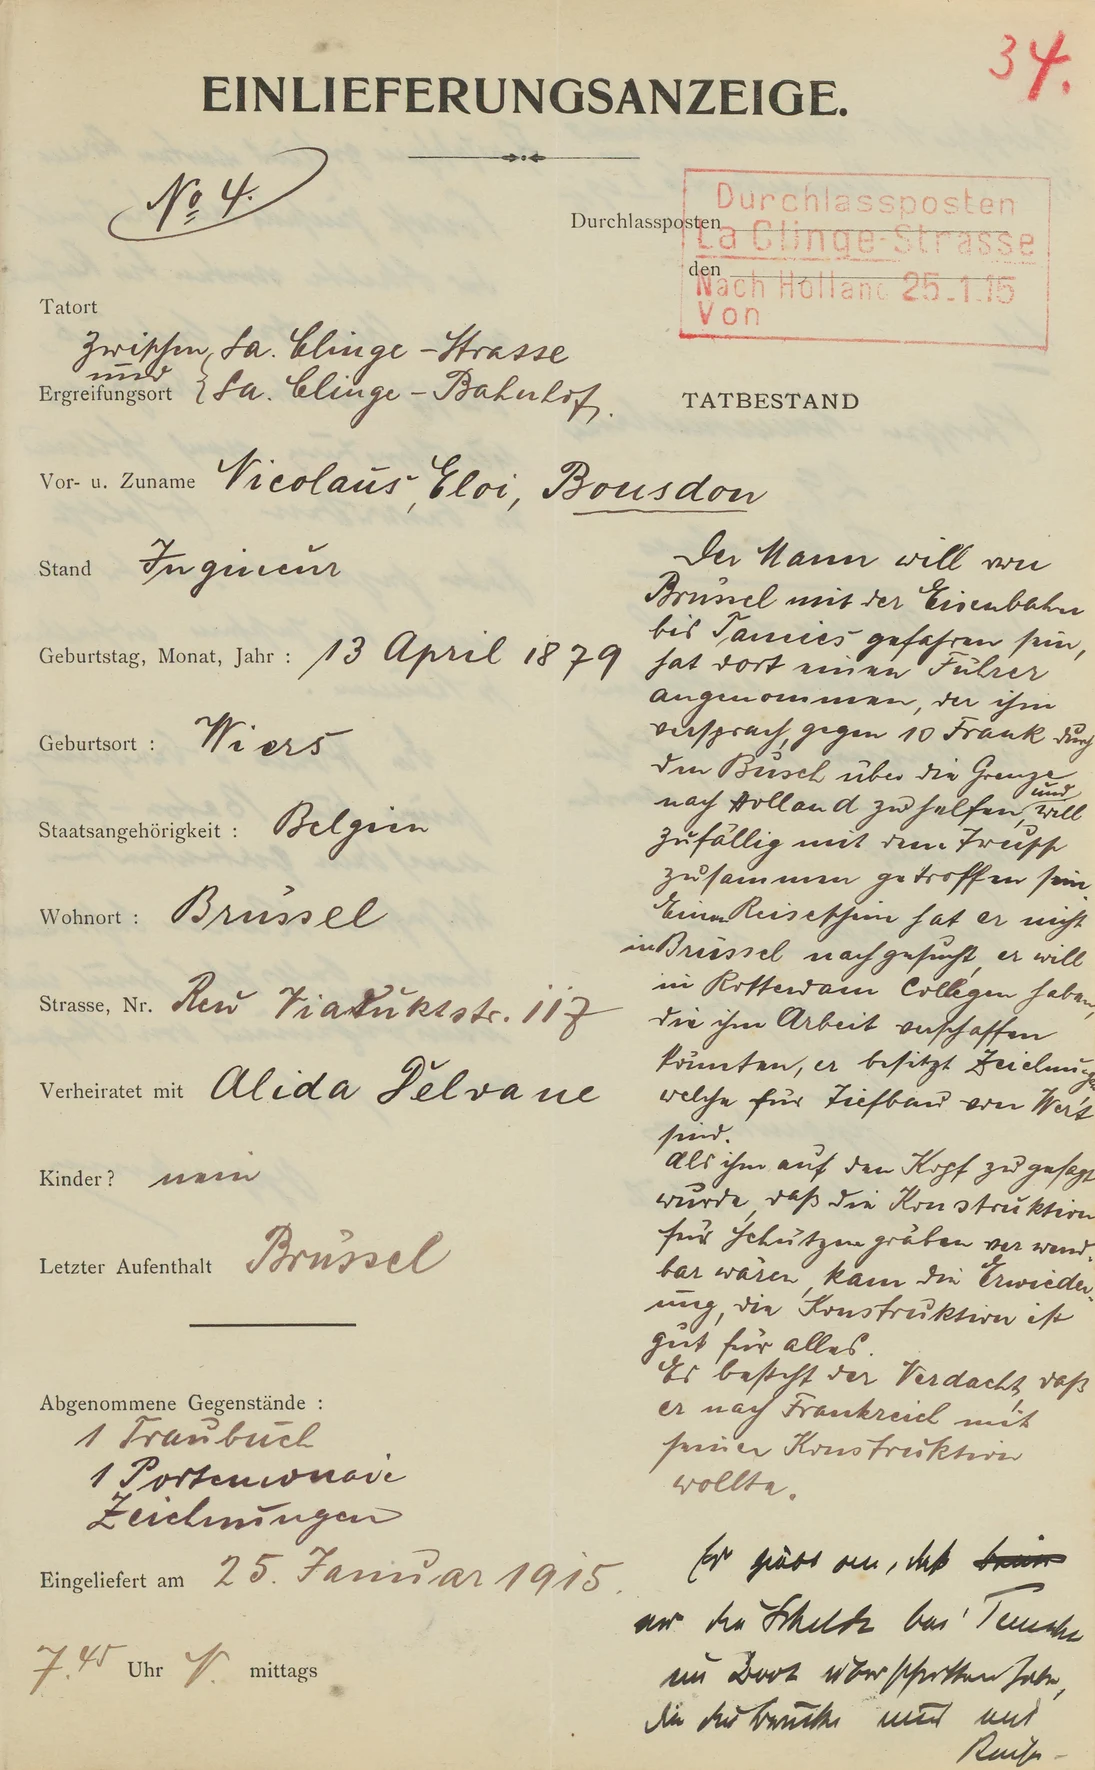 34.
EINLIEFERUNGSANZEIGE.
No 4.
Durchlassposten
den
Durchlassposten
La Clinge-Strasse
Nach Holland 25.1.15
Von
Tatort
zwischen La. Clinge-Strasse
und
Ergreifungsort La. Clinge-Bahnhof.
Vor- u. Zuname Nicolaus, Eloi, Bousdon
Stand Ingineur
Geburtstag, Monat, Jahr : 13 April 1879
Geburtsort : Wiers
Staatsangehörigkeit : Belgien
Wohnort : Brüssel
Strasse, Nr. Rew Viaduktstr. 117
Verheiratet mit Alida Delvane
Kinder? nein
Letzter Aufenthalt Brüssel
Abgenommene Gegenstände :
1 Traubuch
1 Portemonaie
Zeichnungen
Eingeliefert am 25. Januar 1915.
7.45 Uhr N. mittags
TATBESTAND
Der Mann will von
Brüssel mit der Eisenbahn
bis Tamies gefahren sein,
hat dort einen Führer
angenommen, der ihm
versprach, gegen 10 Frank durch
den Busch über die Grenze
nach Holland zu helfen, und will
zufällig mit dem Trupp
zusammen getroffen sein
Einen Reiseschein hat er nicht
in Brüssel nachgesucht, er will
in Rotterdam Collegen haben,
die ihm Arbeit verschaffen
könnten, er besitzt Zeichnungen
welche für Tiefbau von Wert
sind.
Als ihm auf den Kopf zu gesagt
wurde, daß die Konstruktion
für Schützengräben verwend-
bar wären, kam die Erwieder-
ung, die Konstruktion ist
gut für alles.
Es besteht der Verdacht, daß
er nach Frankreich mit
seiner Konstruktion
wollte.
Er giebt an, daß
er die Schelde bei Temsche
im Boot überschritten habe,
da die Brücke nur mit